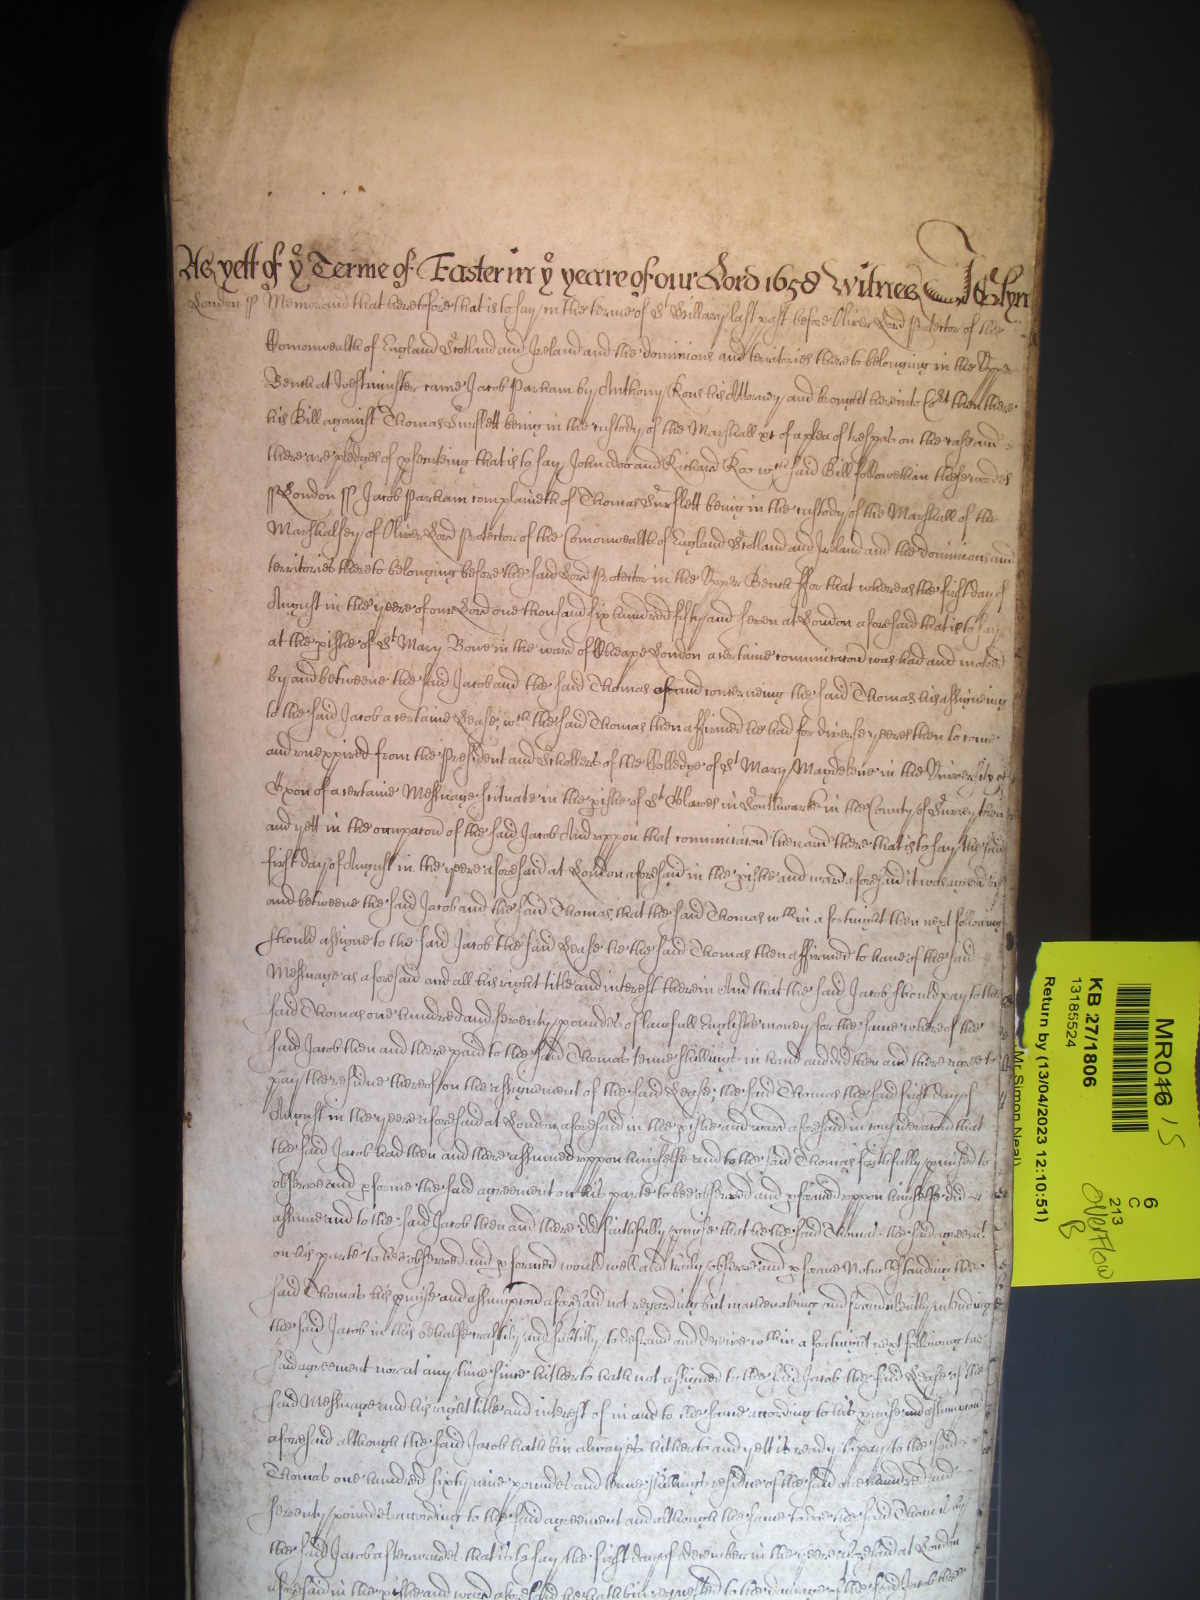 As yett of yͤ Terme of Easter in yͤ yeare of our Lord 1658 Witnes J Glyn
London ss Memorand that heretofore that is to say in the terme of Sᵗ Hillary last past before Oliver Lord Protector of the
Comonwealth of England Scotland and Ireland and the dominions and territories thereto belonging in the Upper
Bench at Westminster came Jacob Parham by Anthony his Attorney and brought here into Coʳt then there
his Bill against Thomas being in the custody of the Marshall &c of a plea of trespas on the case and
there are pledges of psecuteing that is to say John doo and Richard Roo wᶜʰ said Bill followeth in these wordes
ss London ss Jacob Parham complaineth of Thomas being in the custody of the Marshall of the
Marshalsey of Oliver Lord Protector of the Comonwealth of England Scotland and Ireland and the dominions and
territories thereto belonging before the said Lord Protector in the Upper Bench ffor that whereas the first day of
August in the yeere of our Lord one thousand six hundred fifty and seven at London aforesaid that is to say
at the pishe of Sᵗ Mary Bowe in the ward of Cheape London a certaine comunicacon was had and moved
by and betweene the said Jacob and the said Thomas of and concerneing the said Thomas his assigneing
to the said Jacob a certaine Lease wᶜʰ the said Thomas then affirmed he had for diverse yeeres then to come
and unexpired from the President and Schollers of the Colledge of Sᵗ Mary Magdelene in the University of
Oxon of a certaine Messuage scituate in the pishe of Sᵗ Olaves in Southwarke in the County of Surrey then
and yett in the occupacon of the said Jacob And uppon that comunicacon then and there that is to say the said
first day of August in the yeere aforesaid at London aforesaid in the pishe and ward aforesaid it was agreed by
and betweene the said Jacob and the said Thomas that the said Thomas wᵗʰin a fortnight then next following
should assigne to the said Jacob the said Lease he the said Thomas then affirmed to have of the said
Messuage as aforesaid and all his right title and interest therein And that the said Jacob should pay to the
said Thomas one hundred and seventy poundes of lawfull English money for the same whereof the
said Jacob then and there paid to the said Thomas tenne shillings in hand and did then and there agree to
pay the residue thereof on the assignement of the said Lease the said Thomas the said first day of
August in the yeere aforesaid at London aforesaid in the pishe and ward aforesaid in consideracon that
the said Jacob had then and there assumed uppon himselfe and to the said Thomas faithfully pmised to
observe and pforme the said agreement on his parte to bee observed and pformed uppon himselfe did
assume and to the said Jacob then and there did faithfully pmise that he the said Thomas the said agreemᵗ
on his parte to bee observed and pformed would well and truly observe and pforme Notwᵗʰstanding the
said Thomas his pmise and assumpcon aforesaid not regarding but machinateing and fraudulently intending
the said Jacob in this behalfe craftily and subtilly to defraud and deceive wᵗʰin a fortnight next following the
said agreement nor at any time since hitherto hath not assigned to the said Jacob the said Lease of the
said Messuage and his right title and interest of in and to the same according to his pmise and assumpcon
aforesaid although the said Jacob hath bin alwayes hitherto and yett is ready to pay to the said
Thomas one hundred sixty nine poundes and tenne shillings residue of the said one hundred and
seventy poundes according to the said agreement and although the same to doe the said Thomas by
the said Jacob afterwardes that is to say the first day of december in the yeere aforesaid at London
aforesaid in the pishe and ward aforesaid he hath bin requested to the damage of the said Jacob
MR046 15
KB 27/1806
13185524
Return by (13/04/2023 12:10:51)
Mr Simon Neal)
6
C
213
Overflow
B